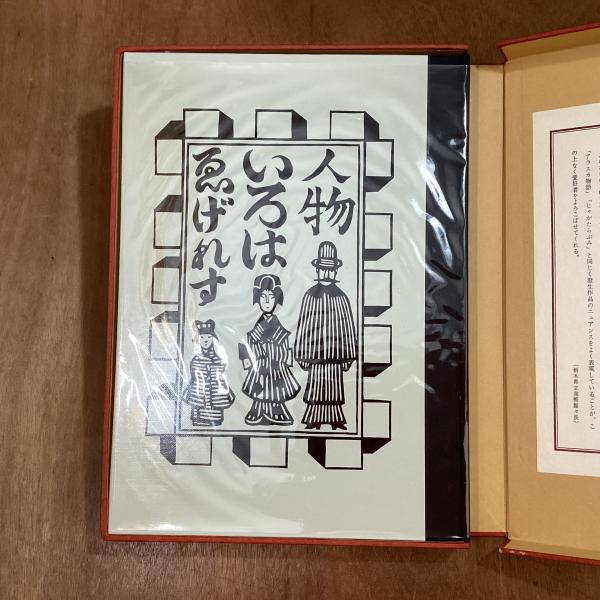 人物
いろは
ゑげれす
「アラスカ物語」「じゃがたらぶみ」と同じく澄生作品のニュアンスをよく表現していることが、こ
の上なく愛好者をよろこばせてくれる。
(栃木県立美術館々長)